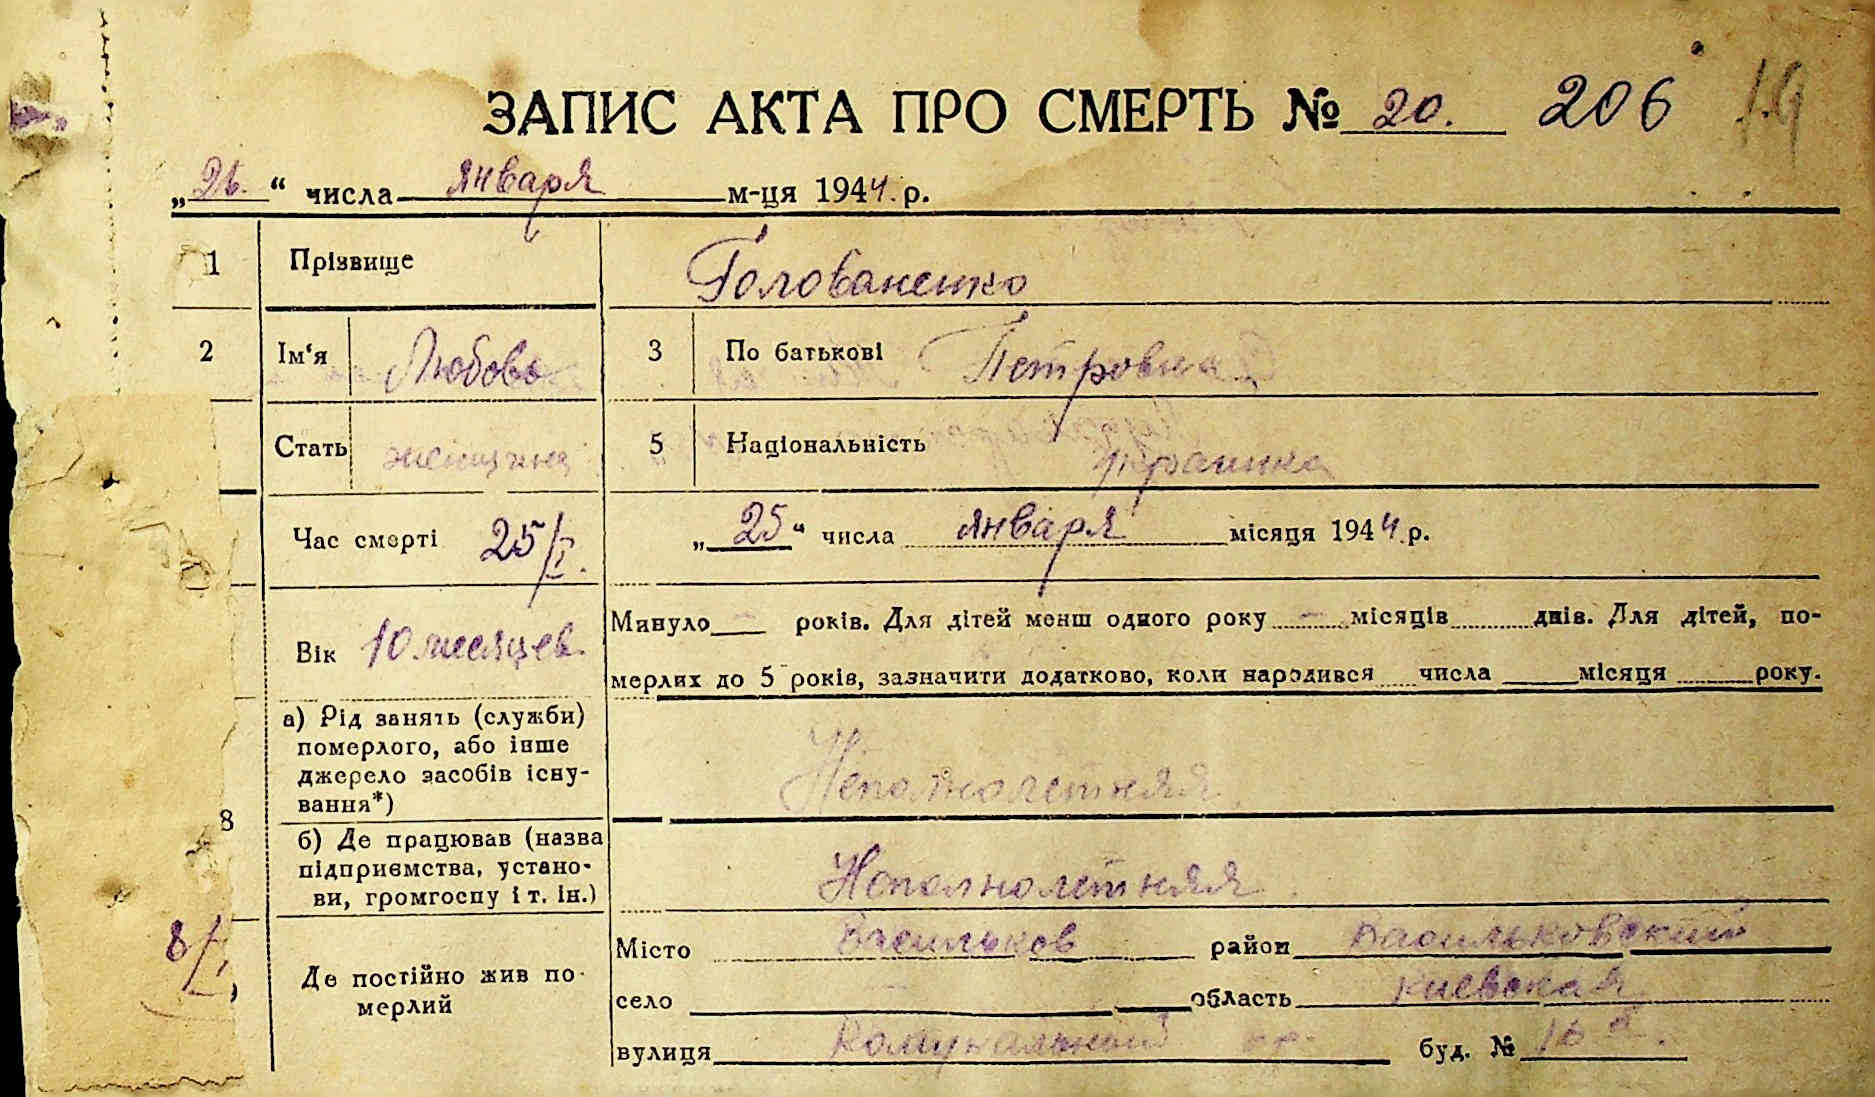 ЗАПИС АКТА ПРО СМЕРТЬ № 20. 206 19
„26.“ числа января м-ця 1944.р.
1 Прізвище Голованенко
2 Ім‘я Любовь 3 По батькові Петровна
Стать женщина 5 Національність украинка
Час смерті 25/I. „25“ числа января місяця 1944.р.
Вік 10 месяцев. Минуло — років. Для дітей менш одного року — місяців днів. Для дітей, по-
мерлих до 5 років, зазначити додатково, коли народився числа місяця року.
8 а) Рід занять (служби)
померлого, або інше
джерело засобів існу-
вання*) Неполнолетняя
б) Де працював (назва
підприємства, устано-
ви, громгоспу і т. ін.) Неполнолетняя.
8/I,
Де постійно жив по-
мерлий
Місто Васильков район Васильковский
село — область Киевская
вулиця Комунальный буд. № 16